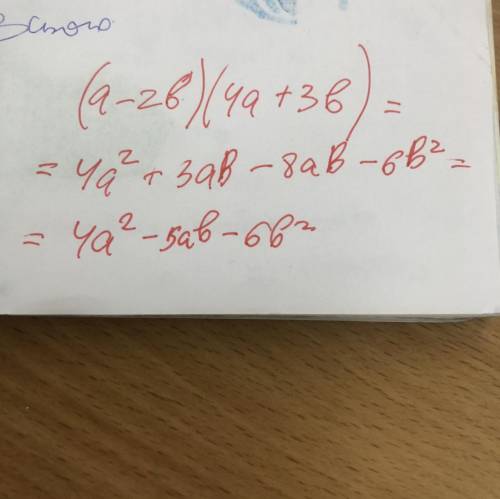 (a-2b)(4a+3b)=
=4a²+3ab-8ab-6b²=
=4a²-5ab-6b²